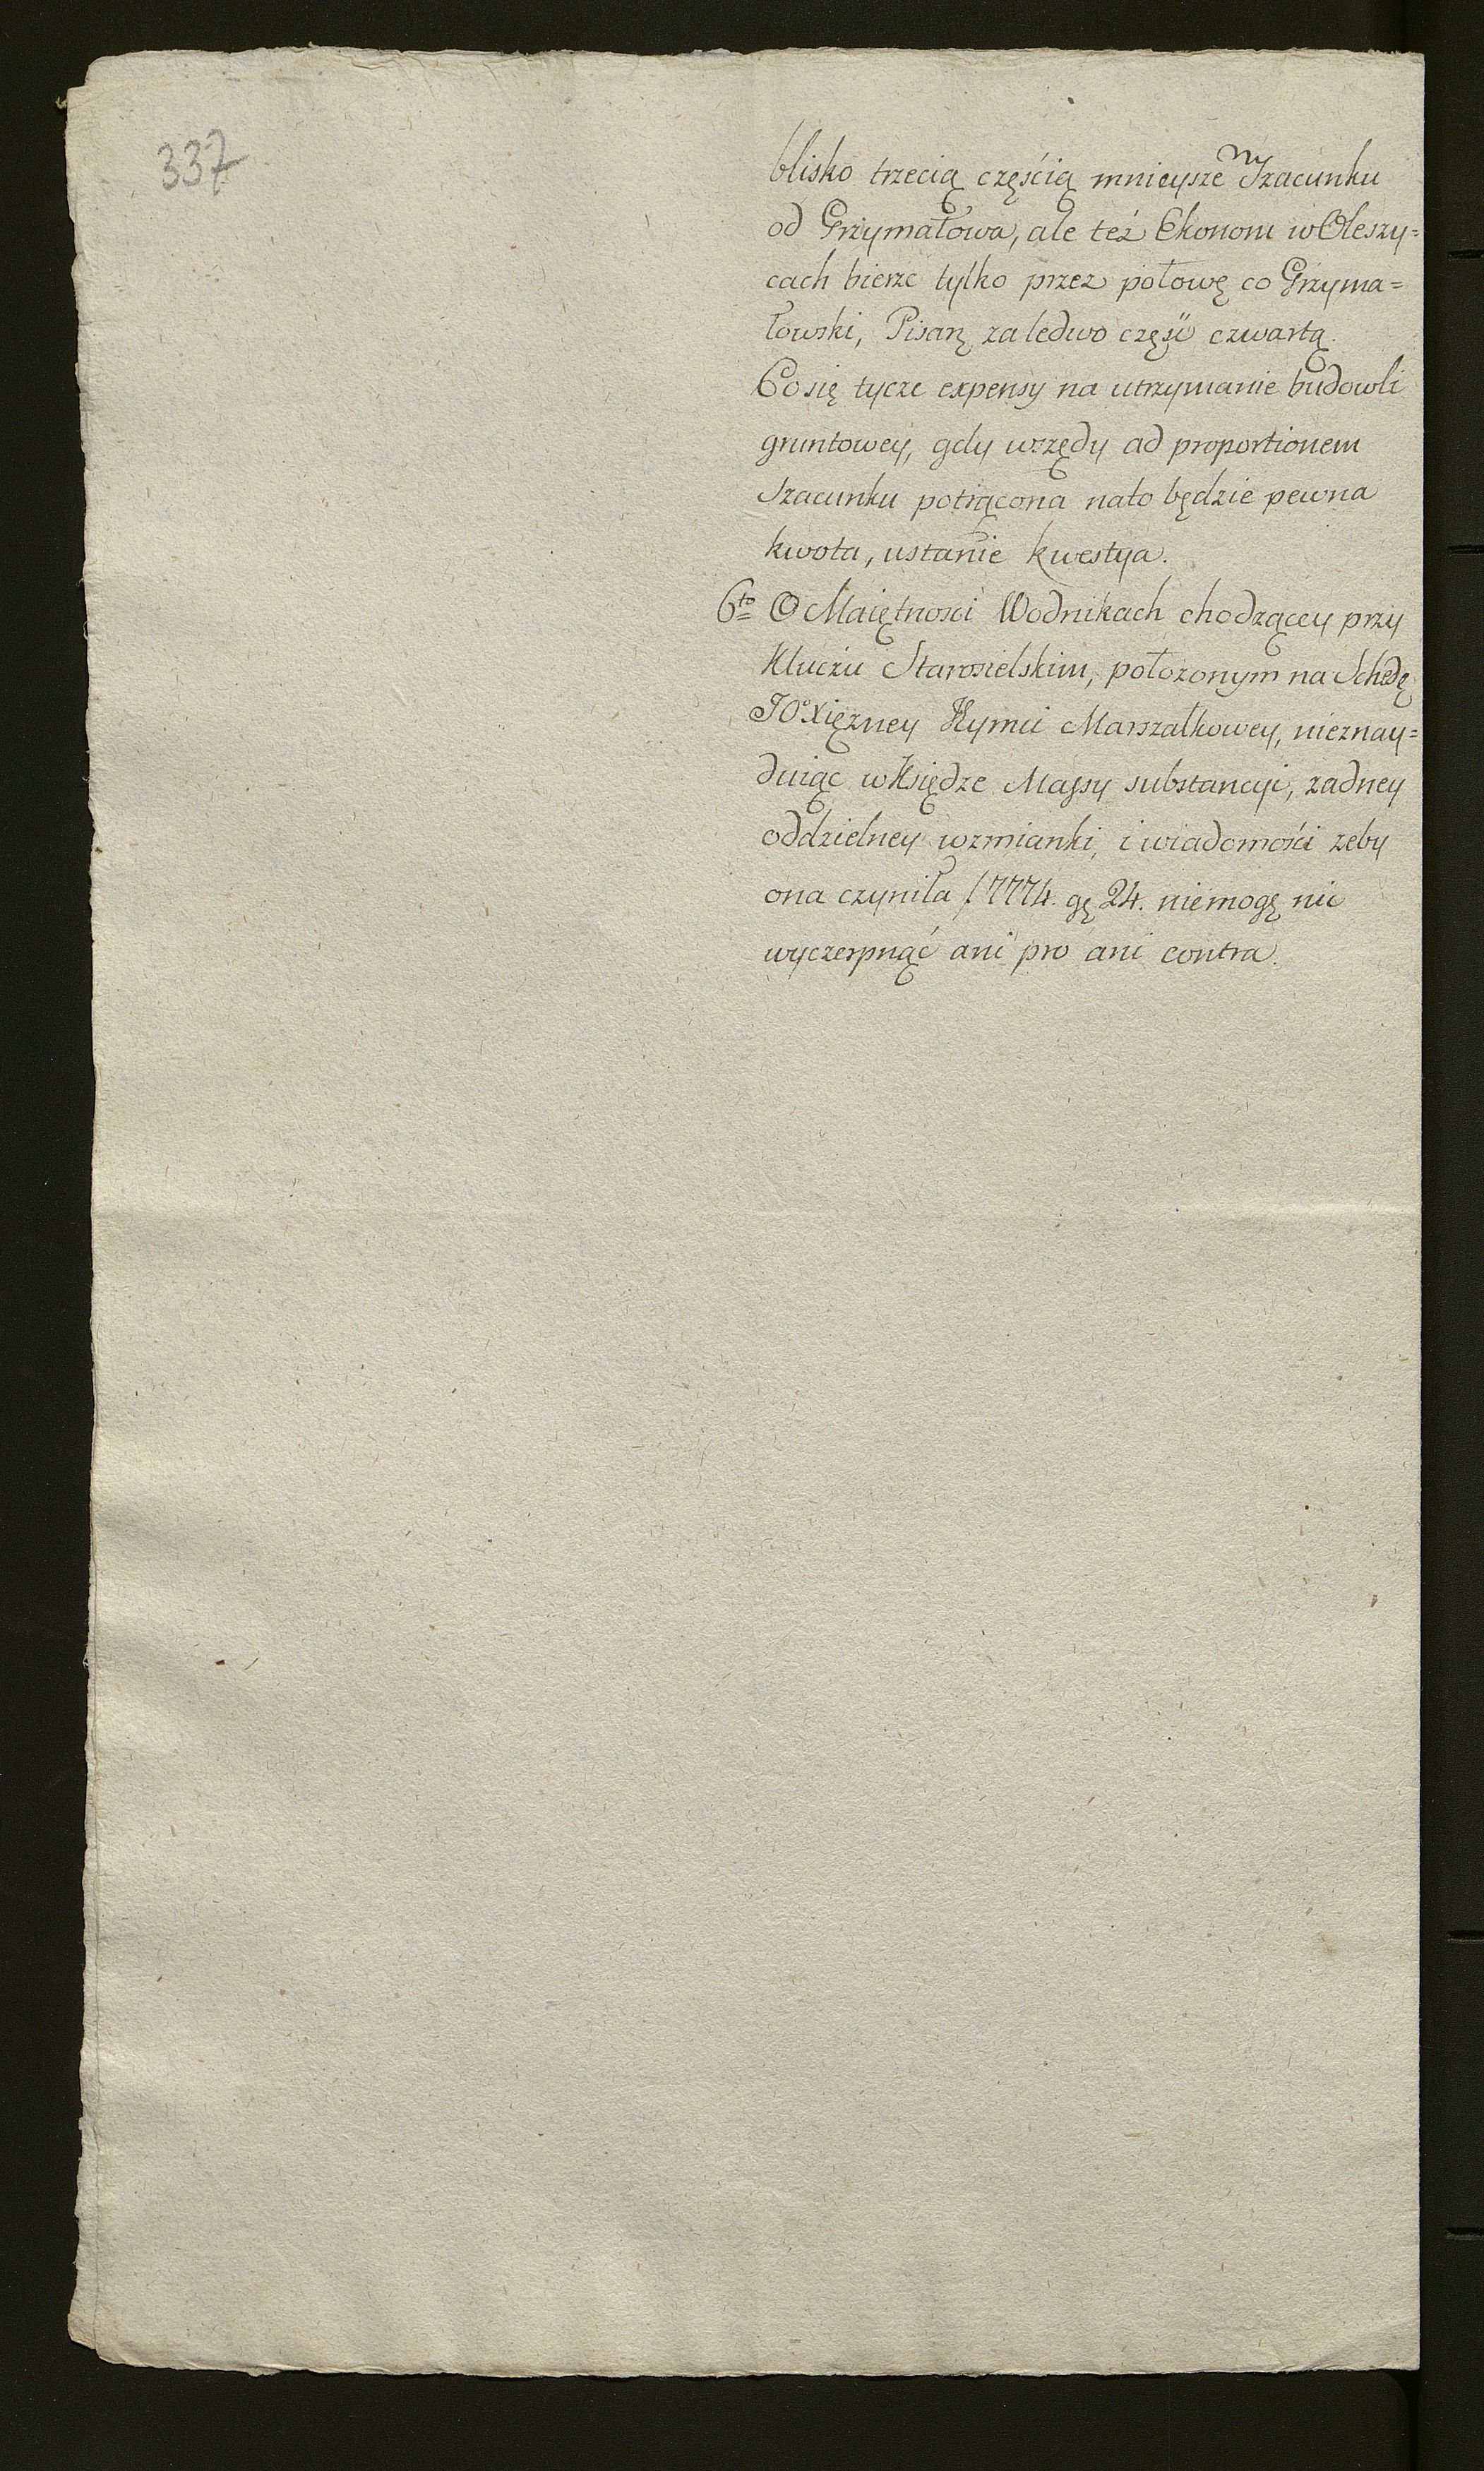 337
blisko trzecią częścią mnieysze w Szacunku
od Grzymałowa, ale też Ekonom w Oleszy=
cach bierze tylko przez połowę co Grzyma=
łowski, Pisarz zaledwo część czwartą.
Co się tycze expensy na utrzymanie budowli
gruntowey, gdy wszędy ad proportionem
Szacunku potrącona nato będzie pewna
kwota, ustanie kwestya.
6to O Maiętności Wodnikach chodzącey przy
Kluczu Starosielskim, położonym na Schedę
JO Xiężney Jeymci Marszałkowey, nieznay=
duiąc w Księdze Massy substancyi, żadney
oddzielney wzmianki, i wiadomości żeby
ona czyniła f 7774. gr 24. niemogę nic
wyczerpnąć ani pro ani contra.